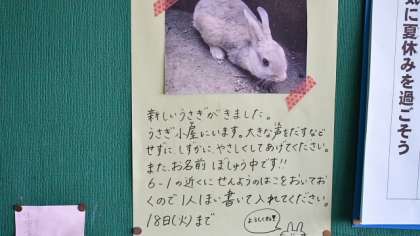 新しいうさぎがきました。
うさぎ小屋にいます。大きな声をだすなど
せずに、しずかに、やさしくしてあげてください。
また、お名前 ぼしゅう中です!!
6-1の近くにせんようのはこをおいてお
くので1人1まい書いて入れてください。
18日(火)まで
よろしくね
気に夏休みを過ごそう